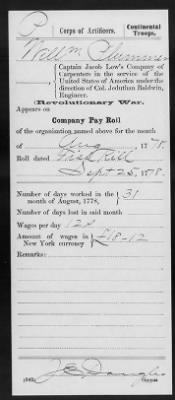 P
Corps of Artificers. Continental Troops.
Will m
Captain Jacob Low's Company of
Carpenters in the service of the
United States of America under the
direction of Col. Jeduthan Baldwin,
Engineer.
(Revolutionary War.)
Appears on
Company Pay Roll
of the organization named above for the month
of Aug 1778.
Roll dated Fish Kill
Sept 25, 1778.
Number of days worked in the
month of August, 1778, 31
Number of days lost in said month
Wages per day 12s
Amount of wages in
New York currency £18-12
Remarks:
Copyist.